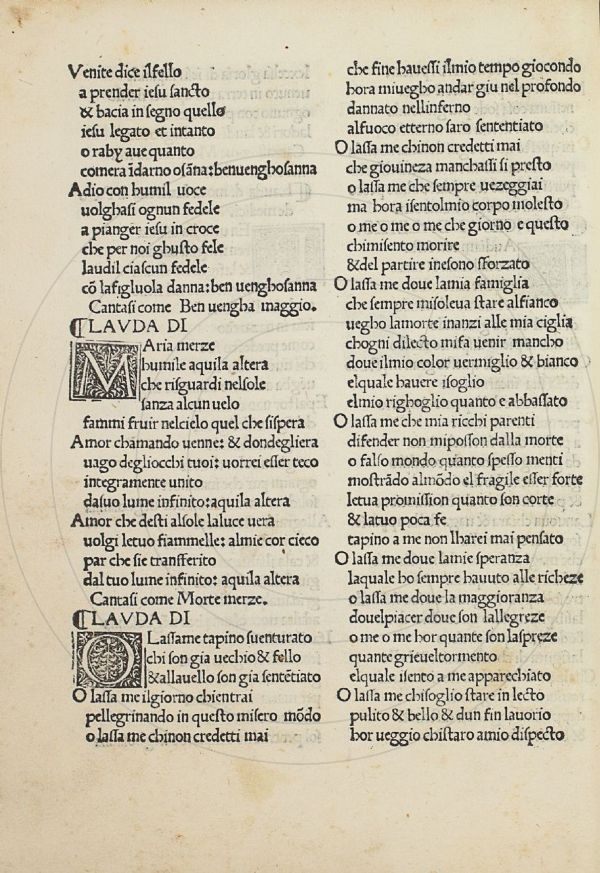 Venite dice ilfello
a prender iesu sancto
& bacia in segno quello
iesu legato et intanto
o raby aue quanto
comera īdarno osāna: benuenghosanna
Adio con humil uoce
uolghasi ognun fedele
a pianger iesu in croce
che per noi ghusto fele
laudil ciascun fedele
cō lafigluola danna: ben uenghosanna
Cantasi come Ben uengha maggio.
¶LAVDA DI
MAria merze
humile aquila altera
che risguardi nelsole
sanza alcun uelo
fammi fruir nelcielo quel che sispera
Amor chamando uenne: & dondegliera
uago degliocchi tuoi: uorrei esser teco
integramente unito
dasuo lume infinito: aquila altera
Amor che desti alsole laluce uera
uolgi letuo fiammelle: almie cor cieco
par che sie transferito
dal tuo lume infinito: aquila altera
Cantasi come Morte merze.
¶LAVDA DI
OLassame tapino suenturato
chi son gia uechio & fello
& allauello son gia sentētiato
O lassa me ilgiorno chientrai
pellegrinando in questo misero mōdo
o lassa me chinon credetti mai
che fine hauessi ilmio tempo giocondo
hora miuegho andar giu nel profondo
dannato nellinferno
alfuoco etterno saro sententiato
O lassa me chinon credetti mai
che giouineza manchassi si presto
o lassa me che sempre uezeggiai
ma hora isentolmio corpo molesto
o me o me o me che giorno e questo
chimisento morire
& del partire inesono sforzato
O lassa me doue lamia famiglia
che sempre misoleua stare alfianco
uegho lamorte inanzi alle mia ciglia
chogni dilecto mifa uenir mancho
doue ilmio color uermiglio & bianco
elquale hauere isoglio
elmio righoglio quanto e abbassato
O lassa me che mia ricchi parenti
difender non miposson dalla morte
o falso mondo quanto spesso menti
mostrādo almōdo el fragile esser forte
letua promission quanto son corte
& latuo poca fe
tapino a me non lharei mai pensato
O lassa me doue lamie speranza
laquale ho sempre hauuto alle richeze
o lassa me doue la maggioranza
douelpiacer doue son lallegreze
o me o me hor quante son laspreze
quante grieueltormento
elquale isento a me apparechiato
O lassa me chisoglio stare in lecto
pulito & bello & dun fin lauorio
hor ueggio chistaro amio dispecto